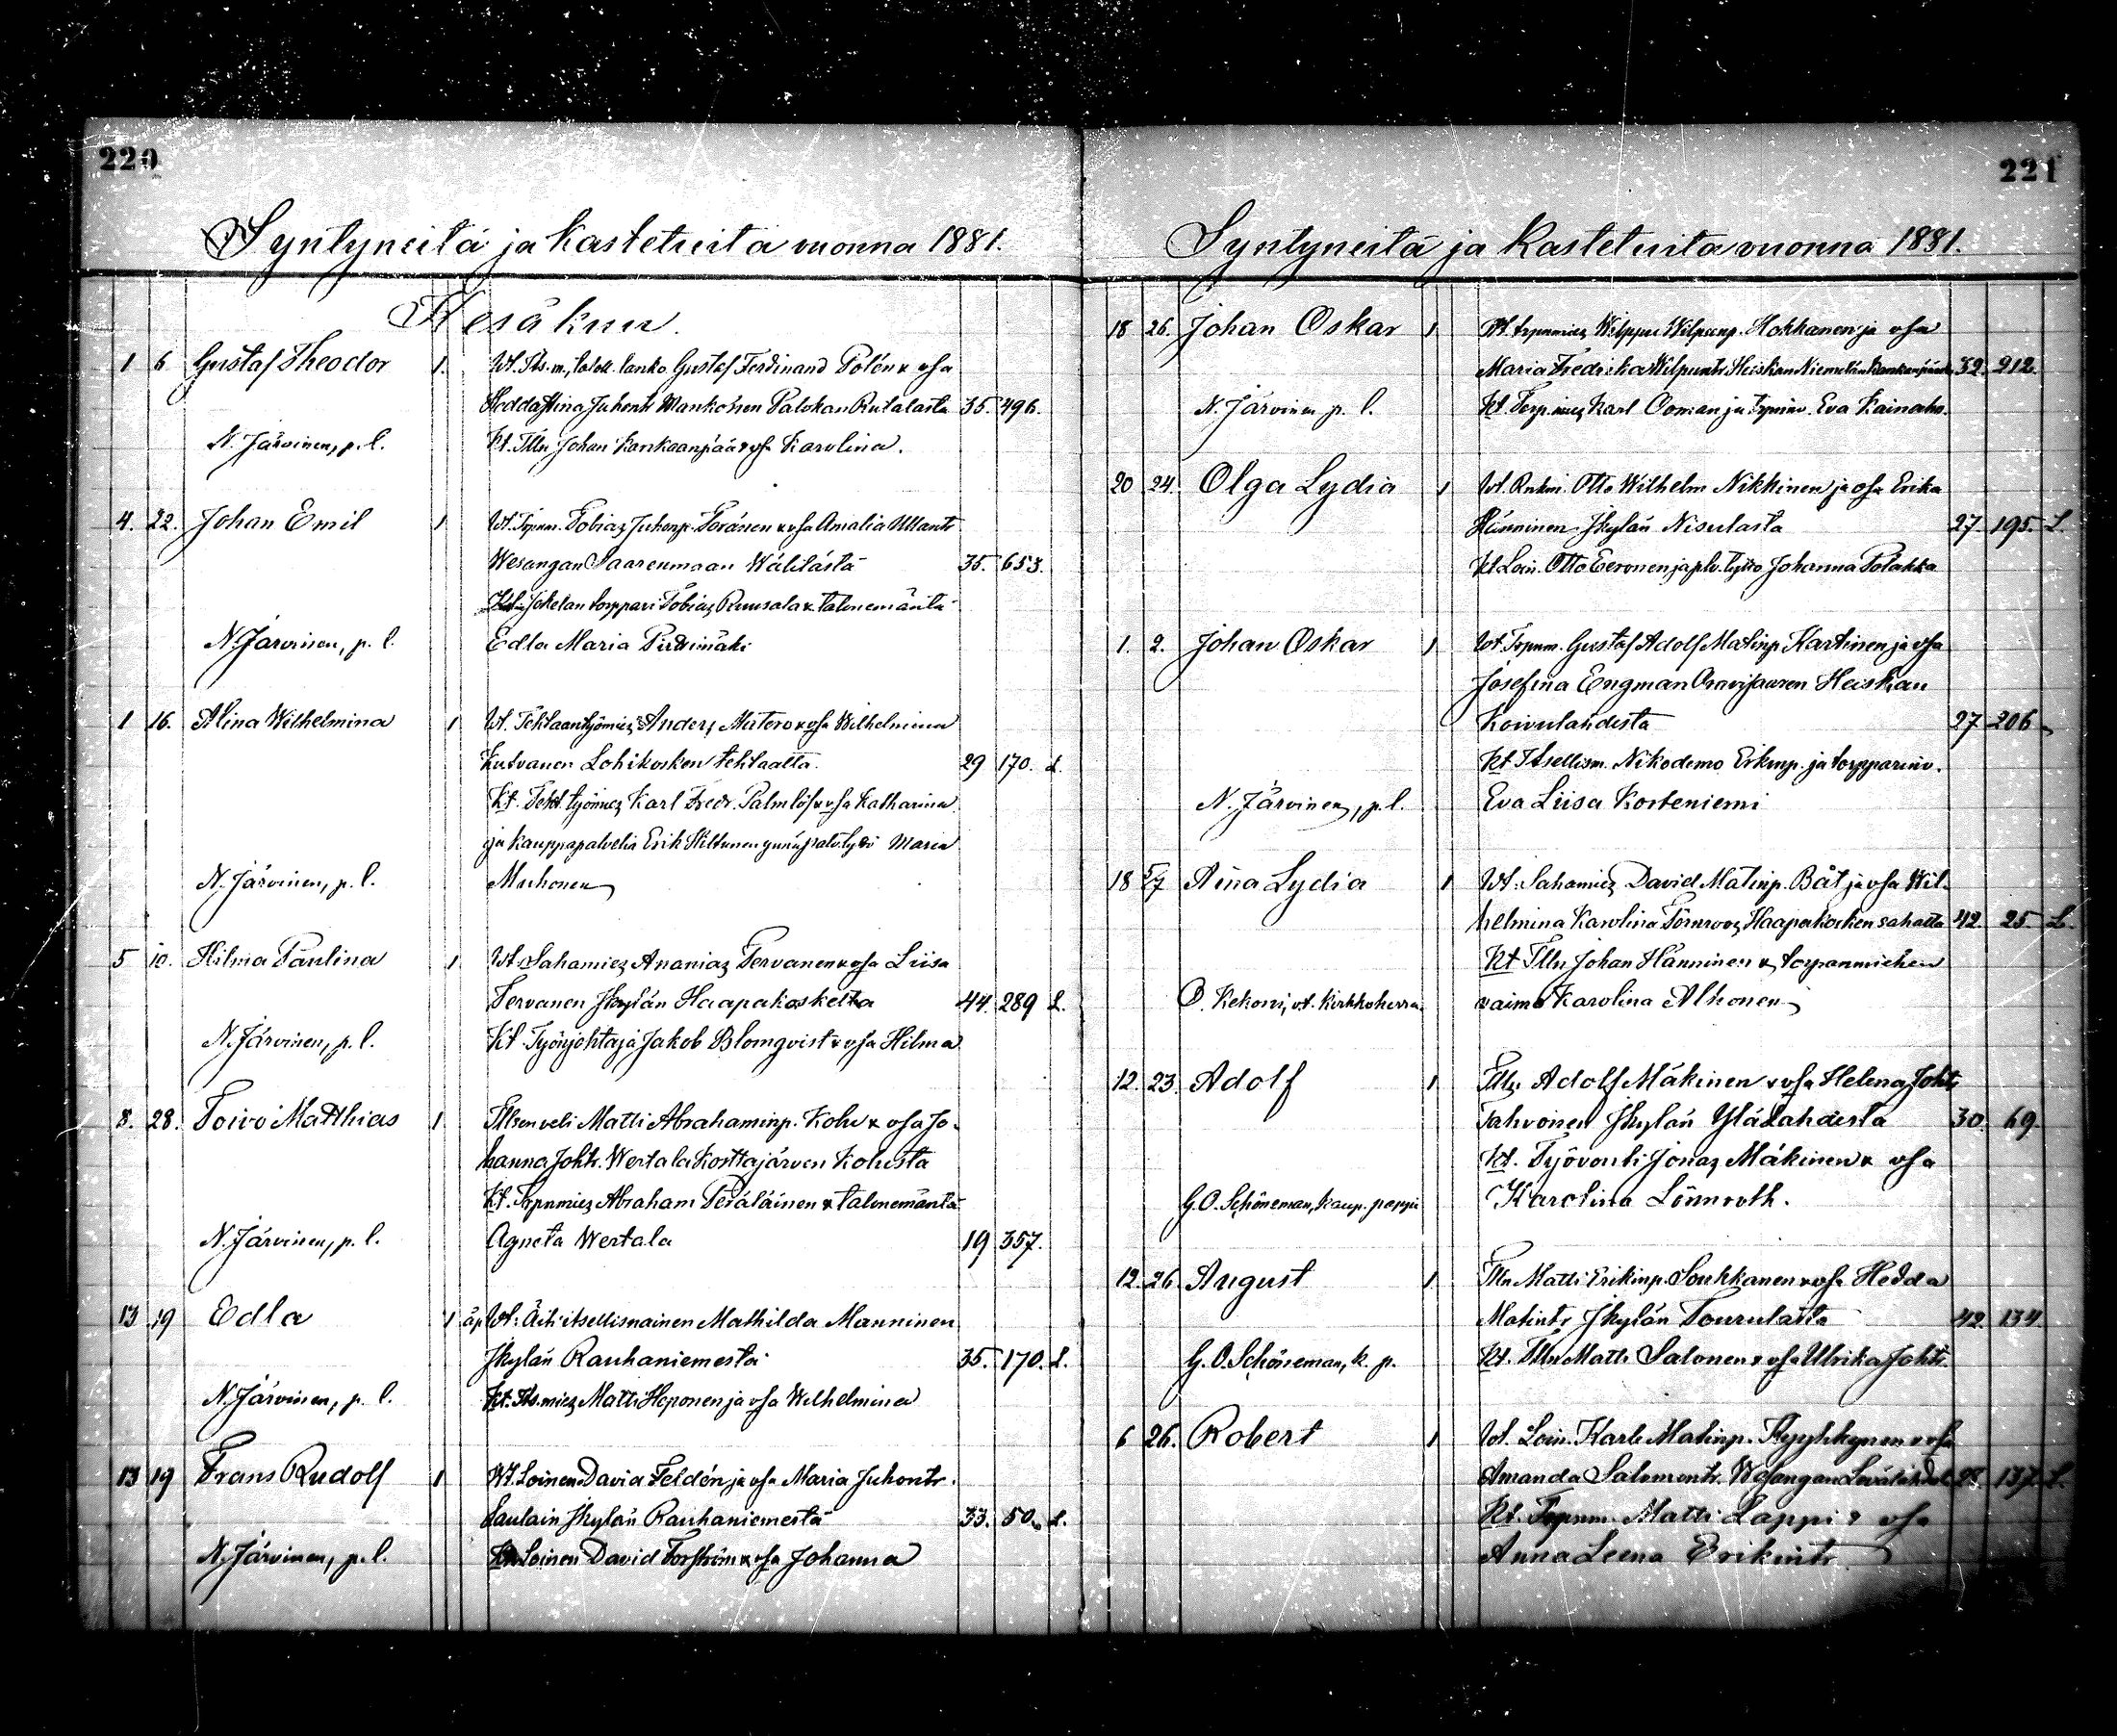 220
Syntyneitä ja kastetuita vuonna 1881.
Kesäkuu.
1 6 Gustaf Theodor 1. Wt. Its.m., talok. lanko Gustaf Ferdinand Polén & vsa
Hedda Stina Juhontr Mankoinen Palokan Rutalasta 35. 496.
N. Järvinen, p. l. Kt. Tllin Johan Kankaanpää & vsa Karolina.
4. 22. Johan Emil 1 Wt. Trpnm. Tobias Juhonp. Toránen & vsa Amalia
Wesangan Saarenmaan Wälilästä 35. 653.
Jokelan torppari Tobias Ruusala & talonemäntä
N. Järvinen, p. l. Edla Maria
1 16. Alina Wilhelmina 1 Wt. Tehtaantyömies Anders Mutero & vsa Wilhelmina
Kutvanen Lohikosken tehtaalta. 29 170. L.
Kt. Teht. työmies Karl Fredr. Palmlöf & vsa Katharina
ja kauppapalvelia Erik Hiltunen ynnä palv.tyttö Maria
N. Järvinen, p. l. Muhonen
5 10. Hilma Paulina 1 Wt. Sahamies Ananias Tervanen & vsa Liisa
Tervanen Jkylän Haapakoskelta 44. 289 L.
N. Järvinen, p. l. Kt. Työnjohtaja Jakob Blomqvist & vsa Hilma
8. 28. Toivo Matthias 1 Tllsen veli Matti Abrahaminp. Kohu & vsa Jo-
hanna Joht. Wertala Kosttajärven Kohusta
Kt. Trpnmies Abraham Peräläinen & talonemäntä
N. Järvinen, p. l. Agneta Wertala 19 357.
13 19 Edla 1 äp. Wt: Äiti itsellisnainen Mathilda Manninen
Jkylän Rauhaniemestä 35. 170. L.
N. Järvinen, p. l. Kt. Its.mies Matti Heponen ja vsa Wilhelmina
13 19 Frans Rudolf 1 Wt. Loinen David Feldén ja vsa Maria Juhontr.
Laulain Jkylän Rauhaniemestä 33. 50. L.
N. Järvinen, p. l. Kt. Loinen David Forsström & vsa Johanna
221
Syntyneitä ja kastetuita vuonna 1881.
18 26. Johan Oskar 1 Wt. trpnmies Wilppu Wilpunp. Hokkanen ja vsa
Maria Fredrika Wilpuntr Heiskan Niemelän 32. 212.
N. Järvinen p. l. Kt. Torp.mies Karl Oman ja trpninv. Eva Kainaho.
20 24. Olga Lydia 1 Wt. Rnkm. Otto Wilhelm Nikkinen ja vsa Erika
Hänninen Jkylän Nisulasta 27. 195. L.
Kt. Loin. Otto Eeronen ja plv. tyttö Johanna Polakka
1. 2. Johan Oskar 1 Wt. Trpnm. Gustaf Adolf Matinp. Kartinen ja vsa
Josefina Engman Oravisaaren Heiskan
Koivulahdesta 27 206
Kt. Itsellism. Nikodemo Erkinp. ja torpparinv.
N. Järvinen, p. l. Eva Liisa Korteniemi
18 5/7 Aina Lydia 1 Wt: Sahamies David Matinp. Båt ja vsa Wil-
helmina Karolina Törnroos Haapakosken sahalta 42. 25. L.
Kt Tlln Johan Hänninen & torpanmiehen
O. Kekoni, vt. Kirkkoherra. vaimo Karolina Alhonen
12. 23. Adolf 1 Tlln. Adolf Mäkinen & vsa Helena Joht.
Tahvonen Jkylän Ylälahdesta 30. 69.
Kt. Työvouti Jonas Mäkinen & vsa
G. O. Schöneman, kaup. pappi Karolina Lönnroth.
12. 26. August 1 Tlln Matti Erikinp. Soukkanen & vsa Hedda
Matintr Jkylän Tourulasta 42. 134.
G. O. Schöneman, k. p. Kt. Tlln Matti Salonen & vsa Ulrika Joht.
6 26. Robert 1 Wt. Loin. Karle Matinp. Kyyhkynen & vsa
Amanda Salomontr. Wesangan 28. 137. L.
Kt. Trpnm. Matti Lappi & vsa
Anna Leena Erikintr